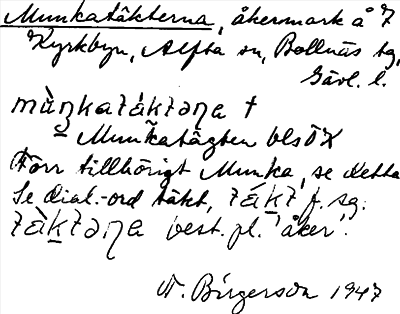 Munkatäkterna, åkermark å 7
Kyrkbyn, Alfta sn, Bollnäs tg,
Gävl. l.
mùŋkatáktəɳa †
Munkatägten blsÖX
Förr tillhörigt Munka, se detta
Se dial.-ord täkt, tákt f. sg.
tàktəɳa best. pl. 'åker'.
N. Birgerson 1947